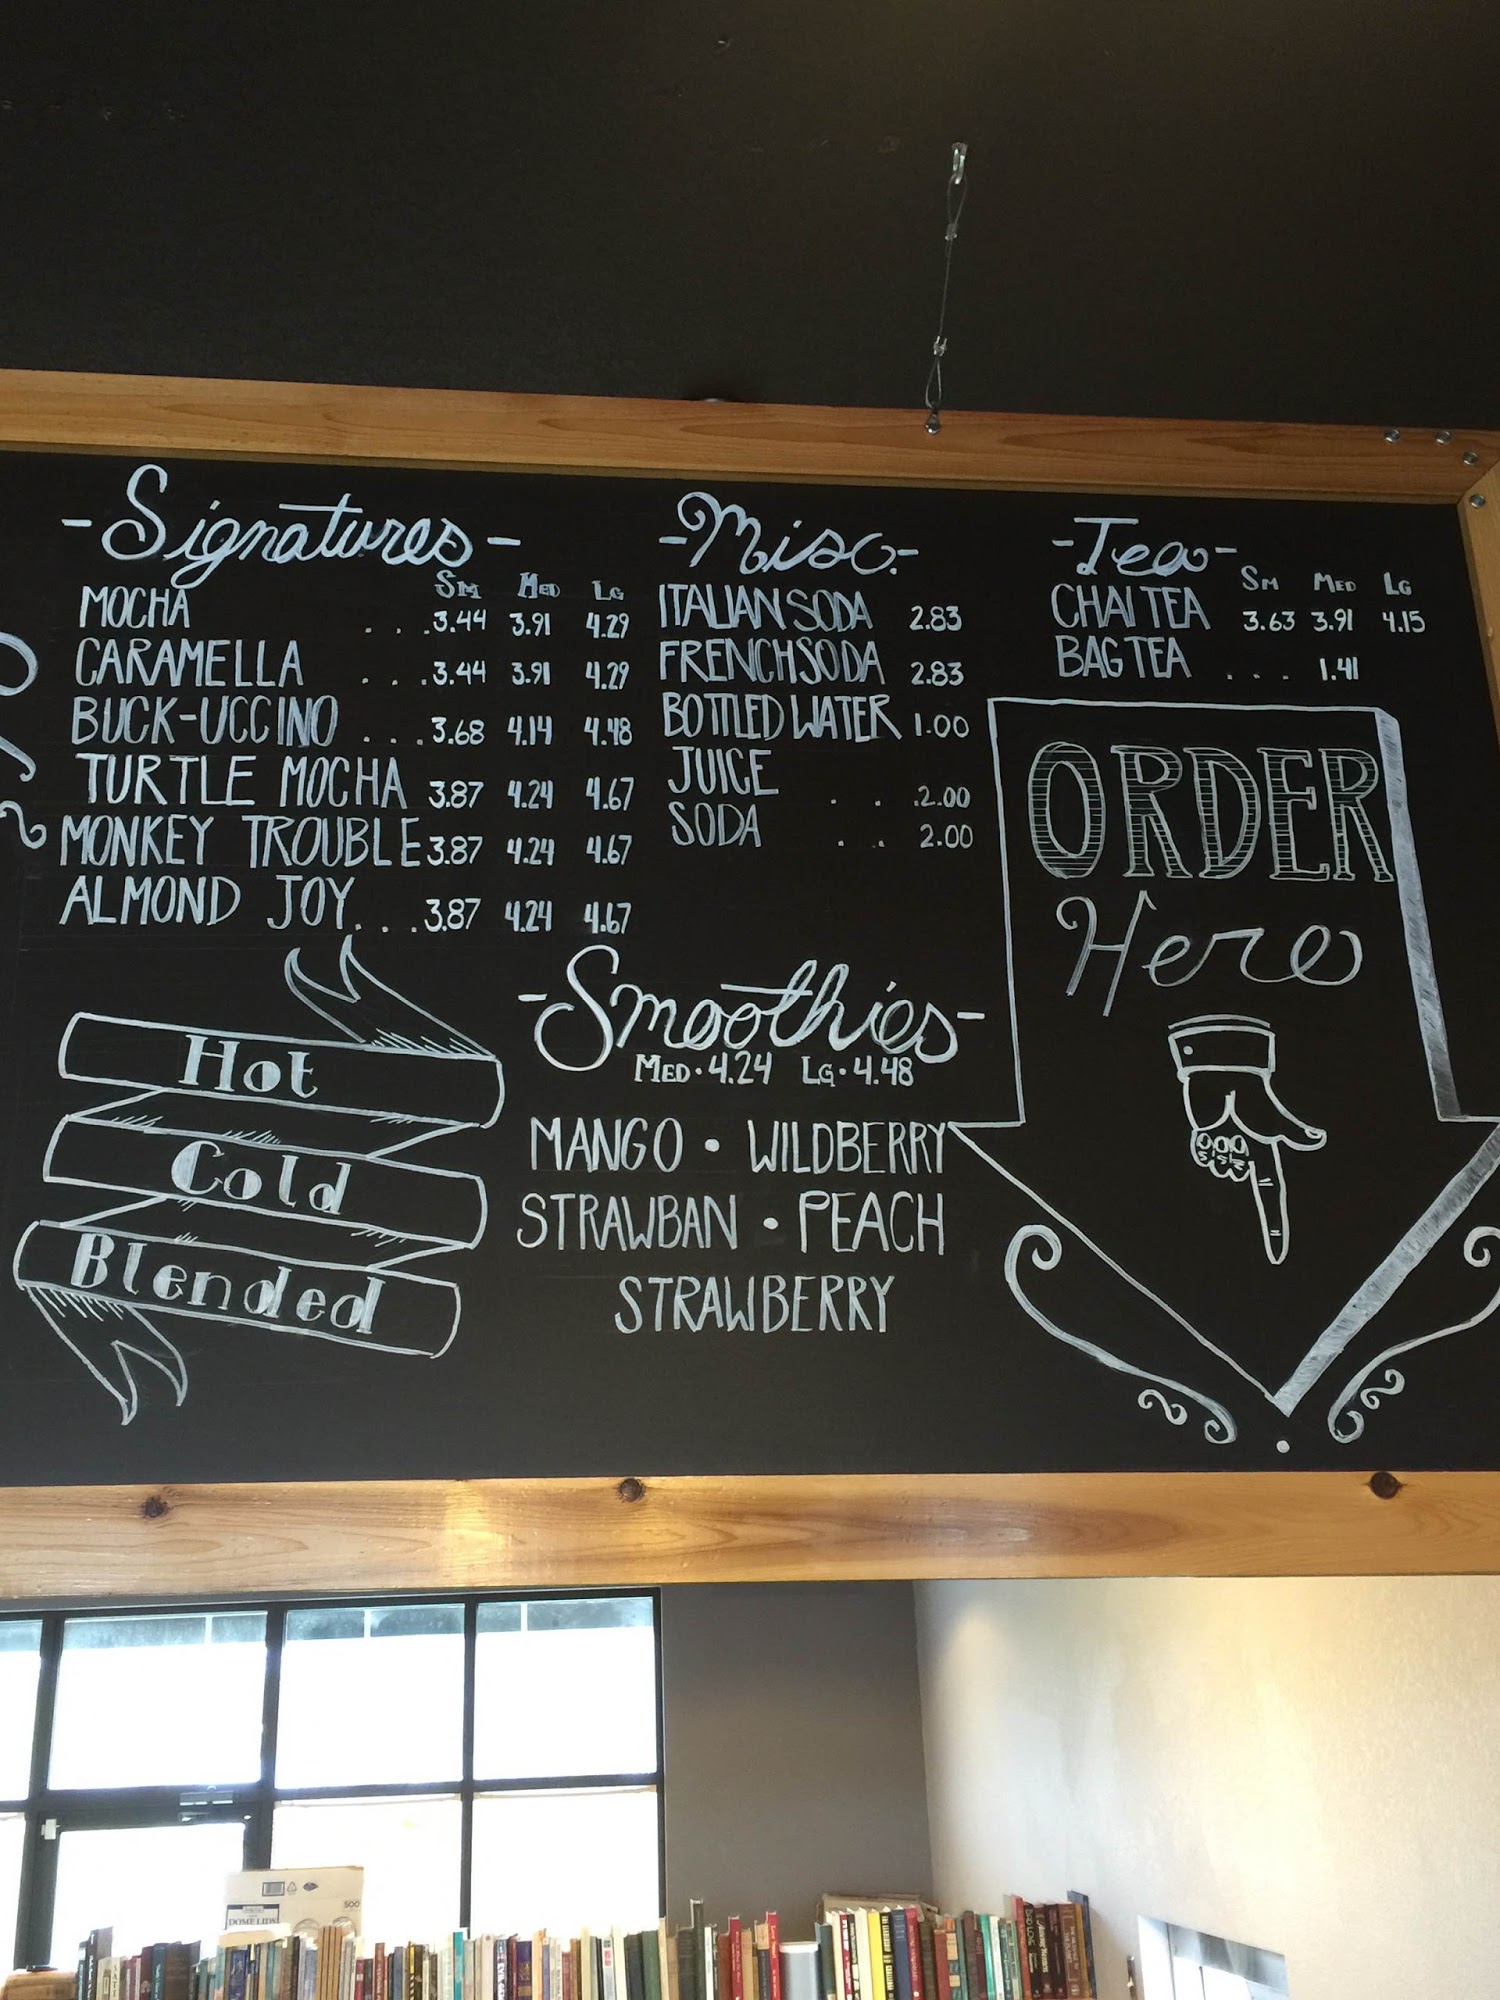 -Signatures-
Sm Med Lg
MOCHA . . . 3.44 3.91 4.29
CARAMELLA . . . 3.44 3.91 4.29
BUCK-UCCINO . . . 3.68 4.14 4.48
TURTLE MOCHA 3.87 4.24 4.67
MONKEY TROUBLE 3.87 4.24 4.67
ALMOND JOY . . . 3.87 4.24 4.67
Hot
Cold
Blended
-Misc.-
ITALIAN SODA 2.83
FRENCH SODA 2.83
BOTTLED WATER 1.00
JUICE . . . 2.00
SODA . . 2.00
-Smoothies-
MED · 4.24 LG · 4.48
MANGO • WILDBERRY
STRAWBAN • PEACH
STRAWBERRY
-Tea-
Sm Med Lg
CHAI TEA 3.63 3.91 4.15
BAG TEA . . . 1.41
ORDER
Here
500
DOME LIDS